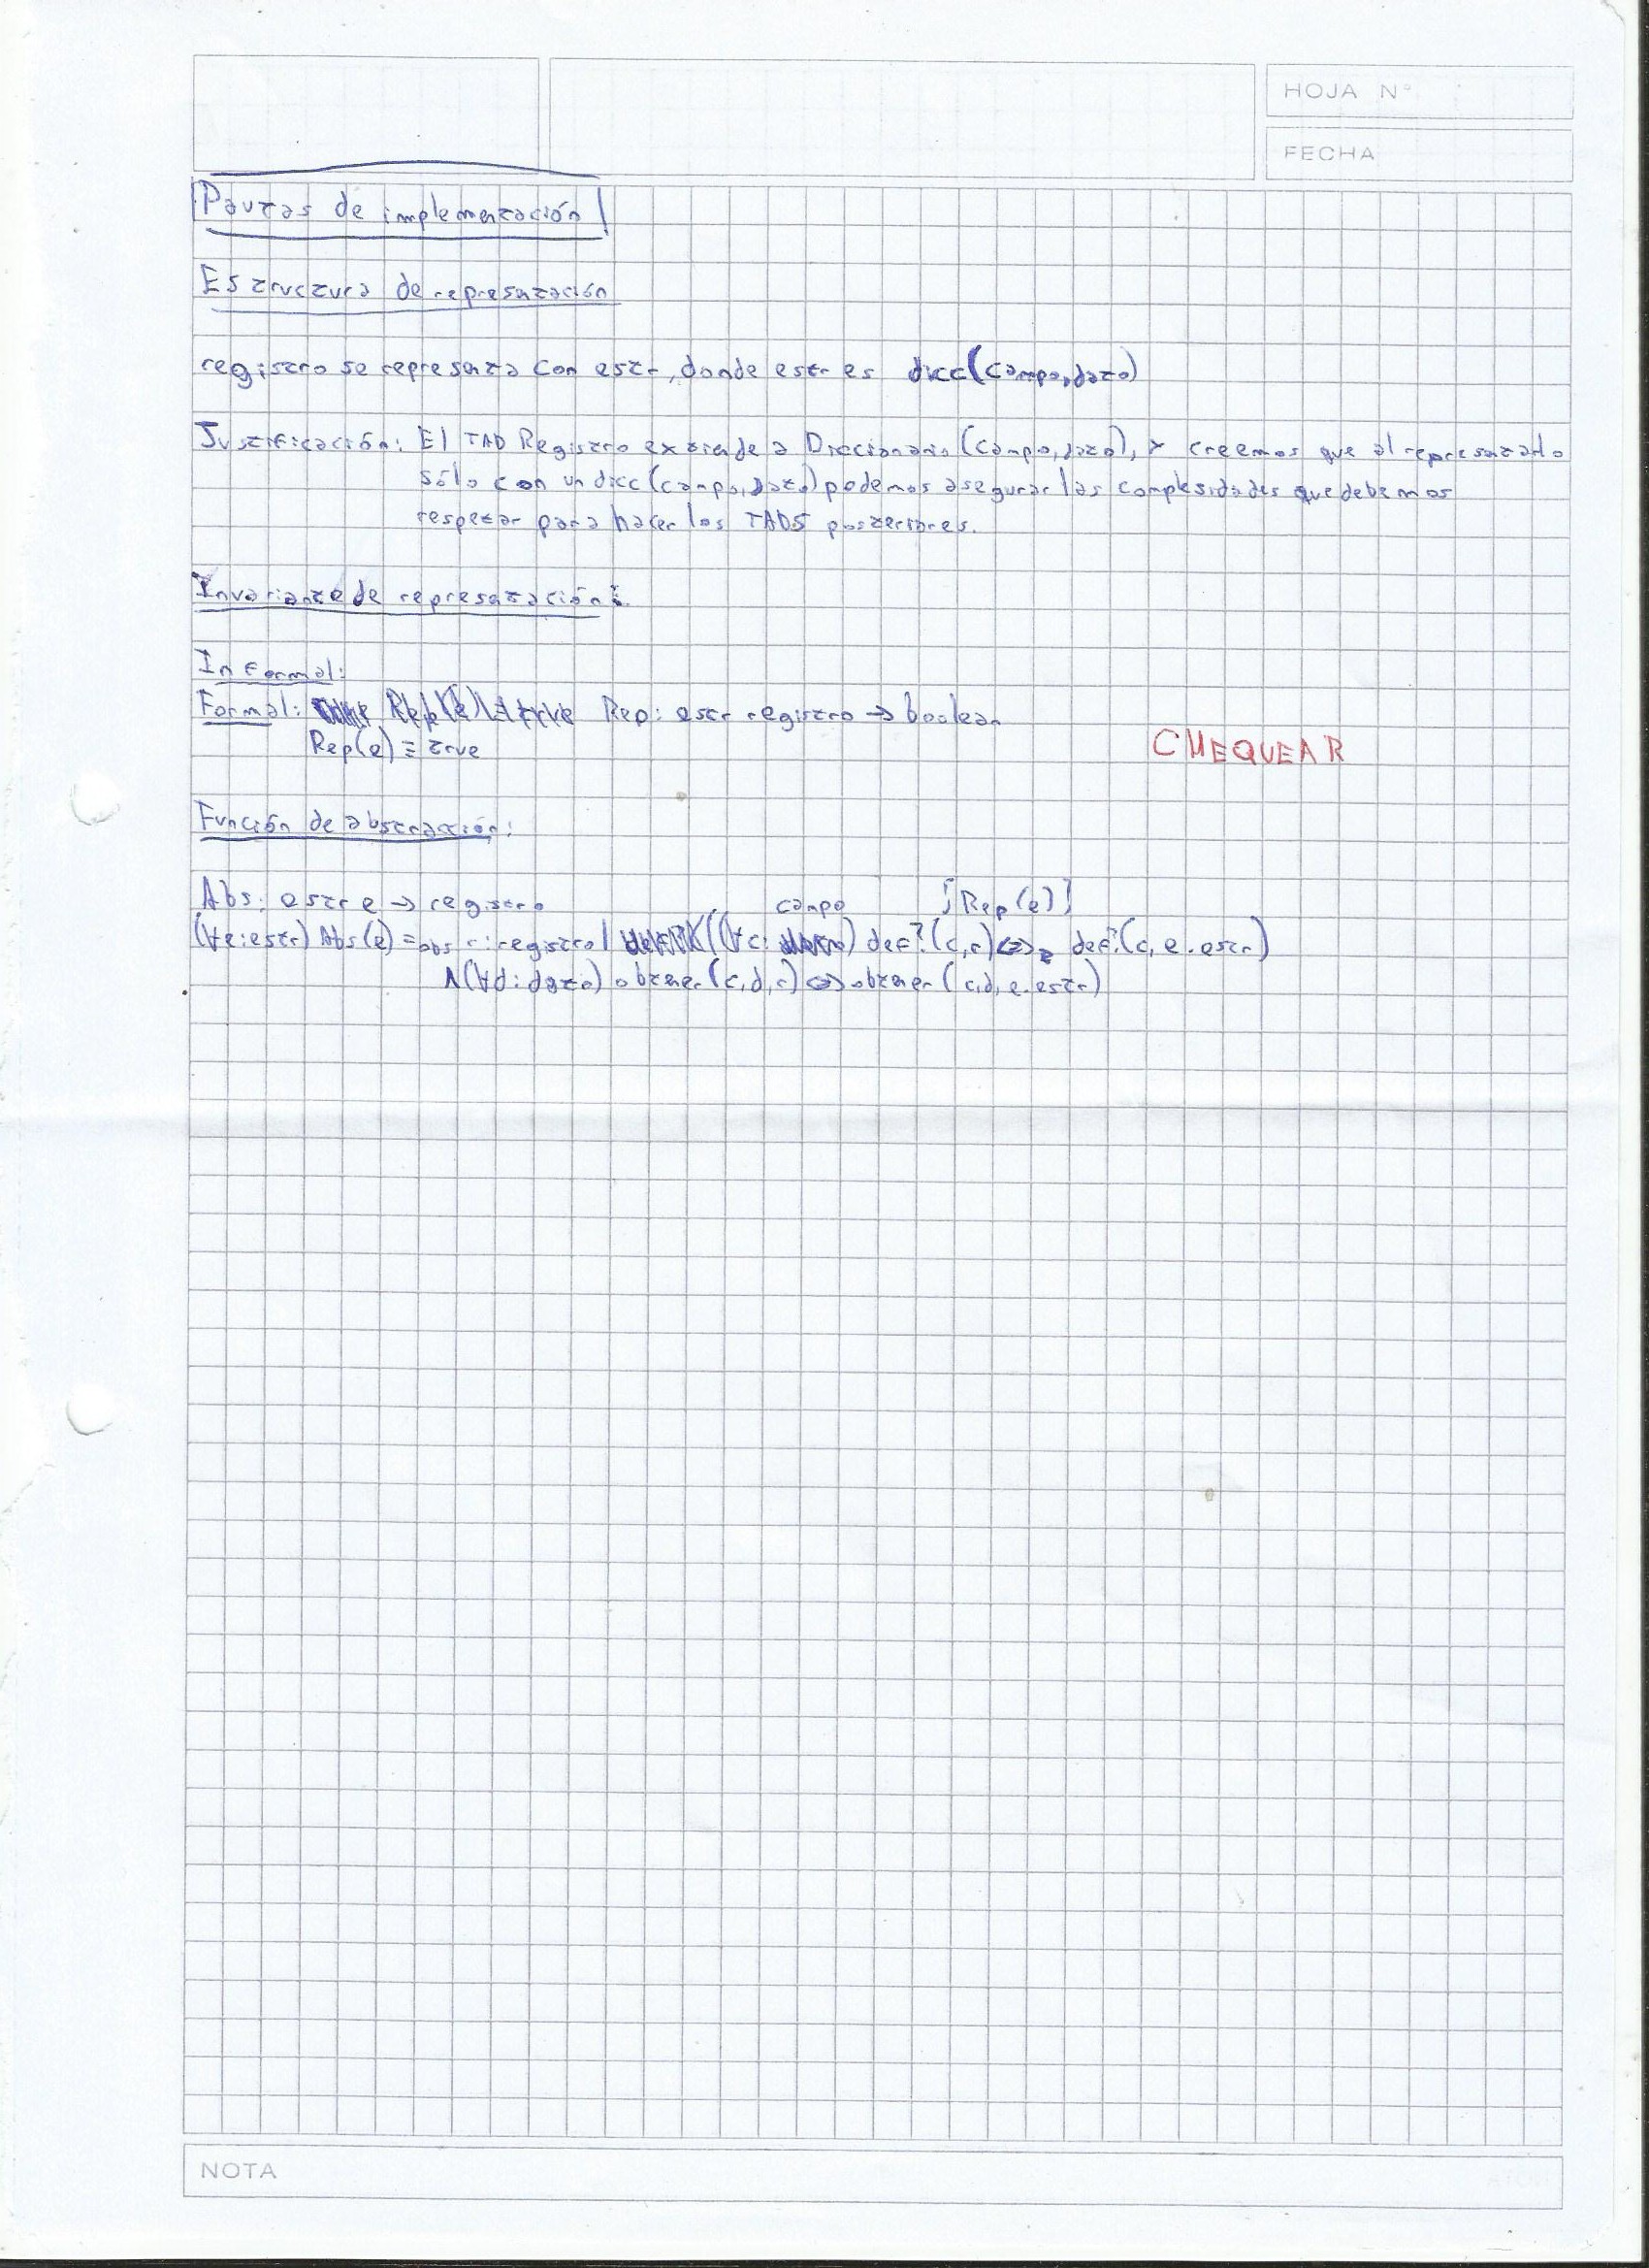 HOJA Nº
FECHA
Pautas de implementación
Estructura de represatación
registro se represata con estr, donde estr es dicc(campo,dato)
Justificación: El TAD Registro extiende a Diccionario(campo,dato), y creemos que al represatarlo
sólo con un dicc(campo,dato) podemos asegurar las complesidades que debemos
respetar para hacer los TADS posteriores.
Invariante de represatación:
Informal:
Formal: Rep: estr registro → boolean
Rep(e) ≡ true
CHEQUEAR
Función de abstracción:
Abs: estr e → registro {Rep(e)}
campo
(∀e:estr) Abs(e) =obs r:registro | ((∀c: ) def?(c,r) ⇔ def?(c, e.estr)
∧(∀d:dato) obtener(c,d,r) ⇔ obtener(c,d, e.estr)
NOTA